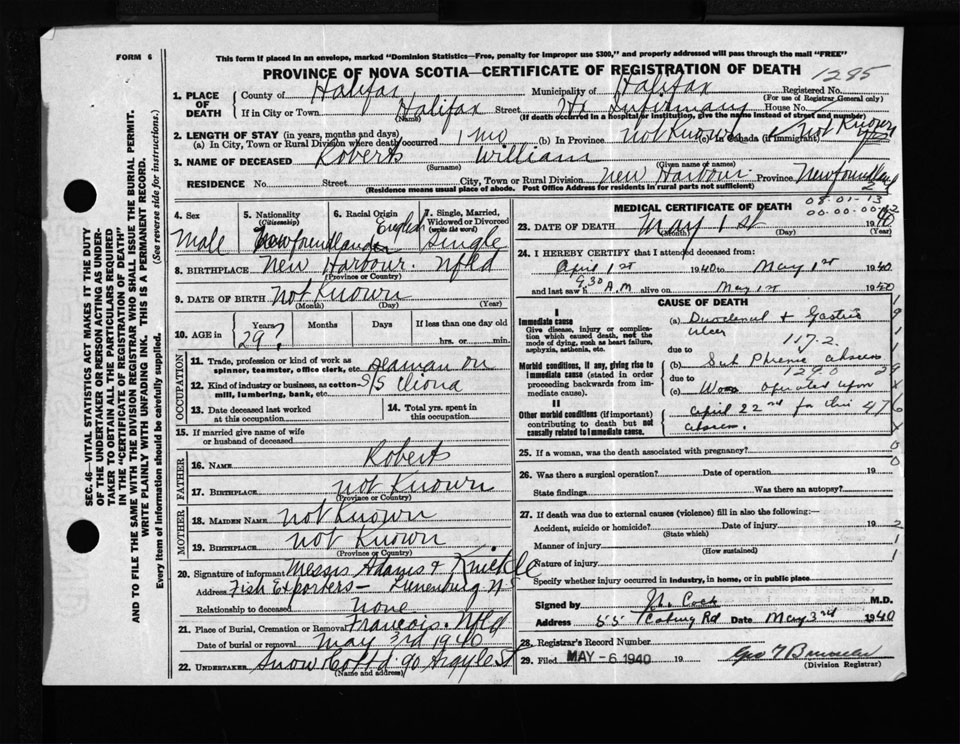 FORM 6
This form if placed in an envelope, marked "Dominion Statistics—Free, penalty for improper use $300," and properly addressed will pass through the mail "FREE"
PROVINCE OF NOVA SCOTIA—CERTIFICATE OF REGISTRATION OF DEATH 1285
SEC. 46—VITAL STATISTICS ACT MAKES IT THE DUTY
OF THE UNDERTAKER OR PERSON ACTING AS UNDER-
TAKER TO OBTAIN ALL THE PARTICULARS REQUIRED
IN THE "CERTIFICATE OF REGISTRATION OF DEATH"
AND TO FILE THE SAME WITH THE DIVISION REGISTRAR WHO SHALL ISSUE THE BURIAL PERMIT.
WRITE PLAINLY WITH UNFADING INK. THIS IS A PERMANENT RECORD.
Every item of information should be carefully supplied. (See reverse side for instructions.)
1. PLACE OF DEATH
County of Halifax Municipality of Halifax Registered No.
(For use of Registrar General only)
If in City or Town Halifax Street Hx Infirmary House No.
(Name) (If death occurred in a hospital or institution, give the name instead of street and number)
2. LENGTH OF STAY (in years, months and days)
(a) In City, Town or Rural Division where death occurred 1 mo (b) In Province not Known (c) In Canada (if immigrant) Not Known
3. NAME OF DECEASED Roberts William
(Surname) (Given name or names)
RESIDENCE No. Street City, Town or Rural Division New Harbour Province Newfoundland
(Residence means usual place of abode. Post Office Address for residents in rural parts not sufficient)
4. Sex Male
5. Nationality (Citizenship) Newfoundlander
6. Racial Origin English
7. Single, Married, Widowed or Divorced (write the word) Single
8. BIRTHPLACE New Harbour. Nfld
(Province or Country)
9. DATE OF BIRTH not Known
(Month) (Day) (Year)
10. AGE in Years Months Days If less than one day old
29? hrs. or min.
OCCUPATION
11. Trade, profession or kind of work as spinner, teamster, office clerk, etc. Seaman on
12. Kind of industry or business, as cotton-mill, lumbering, bank, etc. S/S
13. Date deceased last worked at this occupation
14. Total yrs. spent in this occupation
15. If married give name of wife or husband of deceased
FATHER
16. NAME Roberts
17. BIRTHPLACE not Known
(Province or Country)
MOTHER
18. MAIDEN NAME not Known
19. BIRTHPLACE not Known
(Province or Country)
20. Signature of informant Messrs Adams & Knickle
Address Fish Exporters — Lunenburg N S
Relationship to deceased none
21. Place of Burial, Cremation or Removal Francois. Nfld
Date of burial or removal May 3rd 1940
22. UNDERTAKER Snow & Co Ltd. 90 Argyle St
(Name and address)
MEDICAL CERTIFICATE OF DEATH
08-01-13
23. DATE OF DEATH May 1st 1940
(Month) (Day) (Year)
24. I HEREBY CERTIFY that I attended deceased from:
April 1st 1940 to May 1st 1940
and last saw h 9.30 A.M alive on May 1st 1940
CAUSE OF DEATH
I
Immediate cause
Give disease, injury or complication which caused death, not the mode of dying, such as heart failure, asphyxia, asthenia, etc.
(a) Duodenal & Gastric
Ulcer
117.2.
due to
Morbid conditions, if any, giving rise to immediate cause (stated in order proceeding backwards from immediate cause).
(b) Sub Phrenic abscess
due to
(c) Was operated upon
II
Other morbid conditions (if important) contributing to death but not causally related to immediate cause.
April 22nd for this
abscess.
25. If a woman, was the death associated with pregnancy?
26. Was there a surgical operation? Date of operation 19
State findings Was there an autopsy?
27. If death was due to external causes (violence) fill in also the following:—
Accident, suicide or homicide? Date of injury 19
(State which)
Manner of injury
(How sustained)
Nature of injury
Specify whether injury occurred in industry, in home, or in public place
Signed by M.D.
Address 55 Coburg Rd Date May 3rd 1940
28. Registrar's Record Number
29. Filed MAY - 6 1940 19
(Division Registrar)